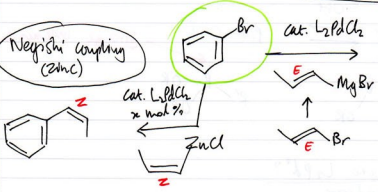 Negishi coupling
(zinc)
Br
cat. L₂PdCl₂
E
MgBr
cat. L₂PdCl₂
x mol%
Z
ZnCl
Z
Br
E